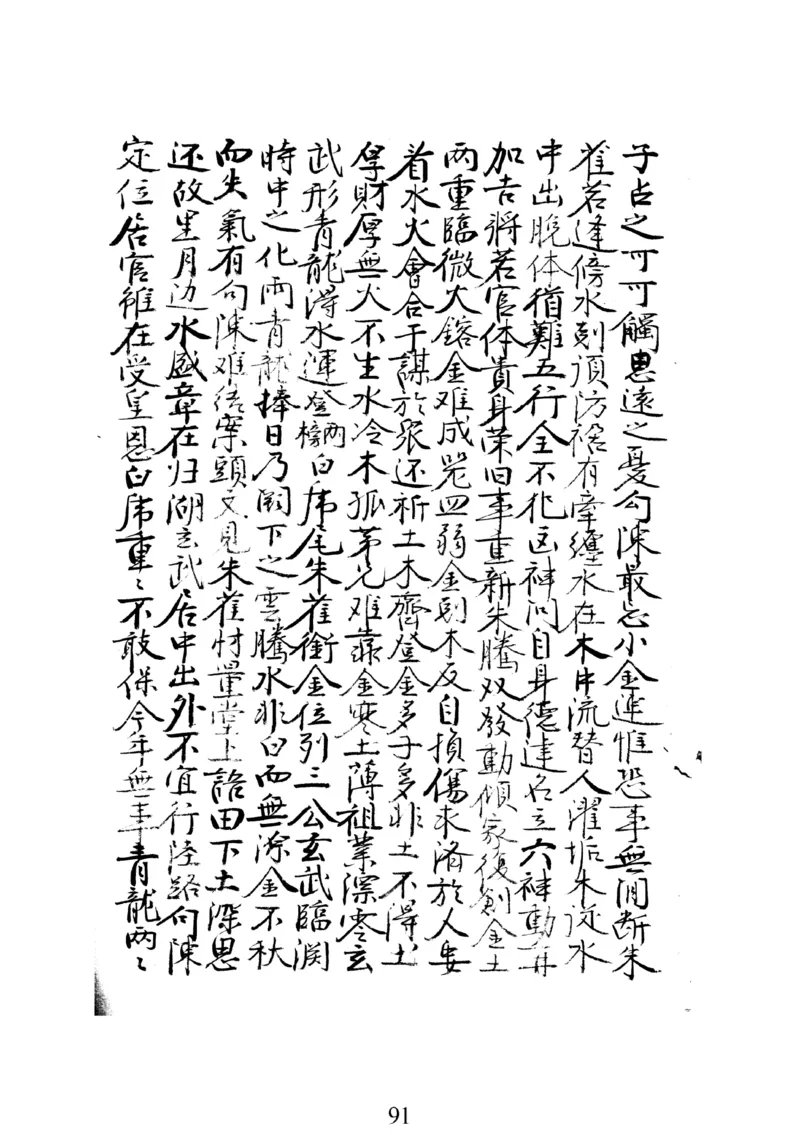 子占之可可觸思遠之憂勾陳最忌小金連惟恐事無间断朱
雀若逢傍水剋須防有牽纏水在木中流替人濯垢木從水
中出脱体猶難五行全不化凶神问自身德達名立六神動并
加吉將若官体貴身荣旧事重新朱腾双發動傾家復創金土
两重臨微火鎔金难成器四弱金剋木反自損傷求済於人安
着水火會合于謀於眾还祈土木齊登金多子多非土不得土
厚財厚無火不生水冷木孤苐兄难靠金寒土薄祖業漂零玄
武形青龍得水運登榜两白虎尾朱雀銜金位列三公玄武臨渕
時中之化雨青龍捧日乃闕下之雲腾水非白而無潦金不秋
而失氣有勾陳难结案頭文見朱雀忖量堂上語田下土深思
还故里月边水盛章在归湖玄武居中出外不宜行陸路勾陳
定位居官雖在受皇恩白虎重〻不敢保今年無事青龍两〻
91